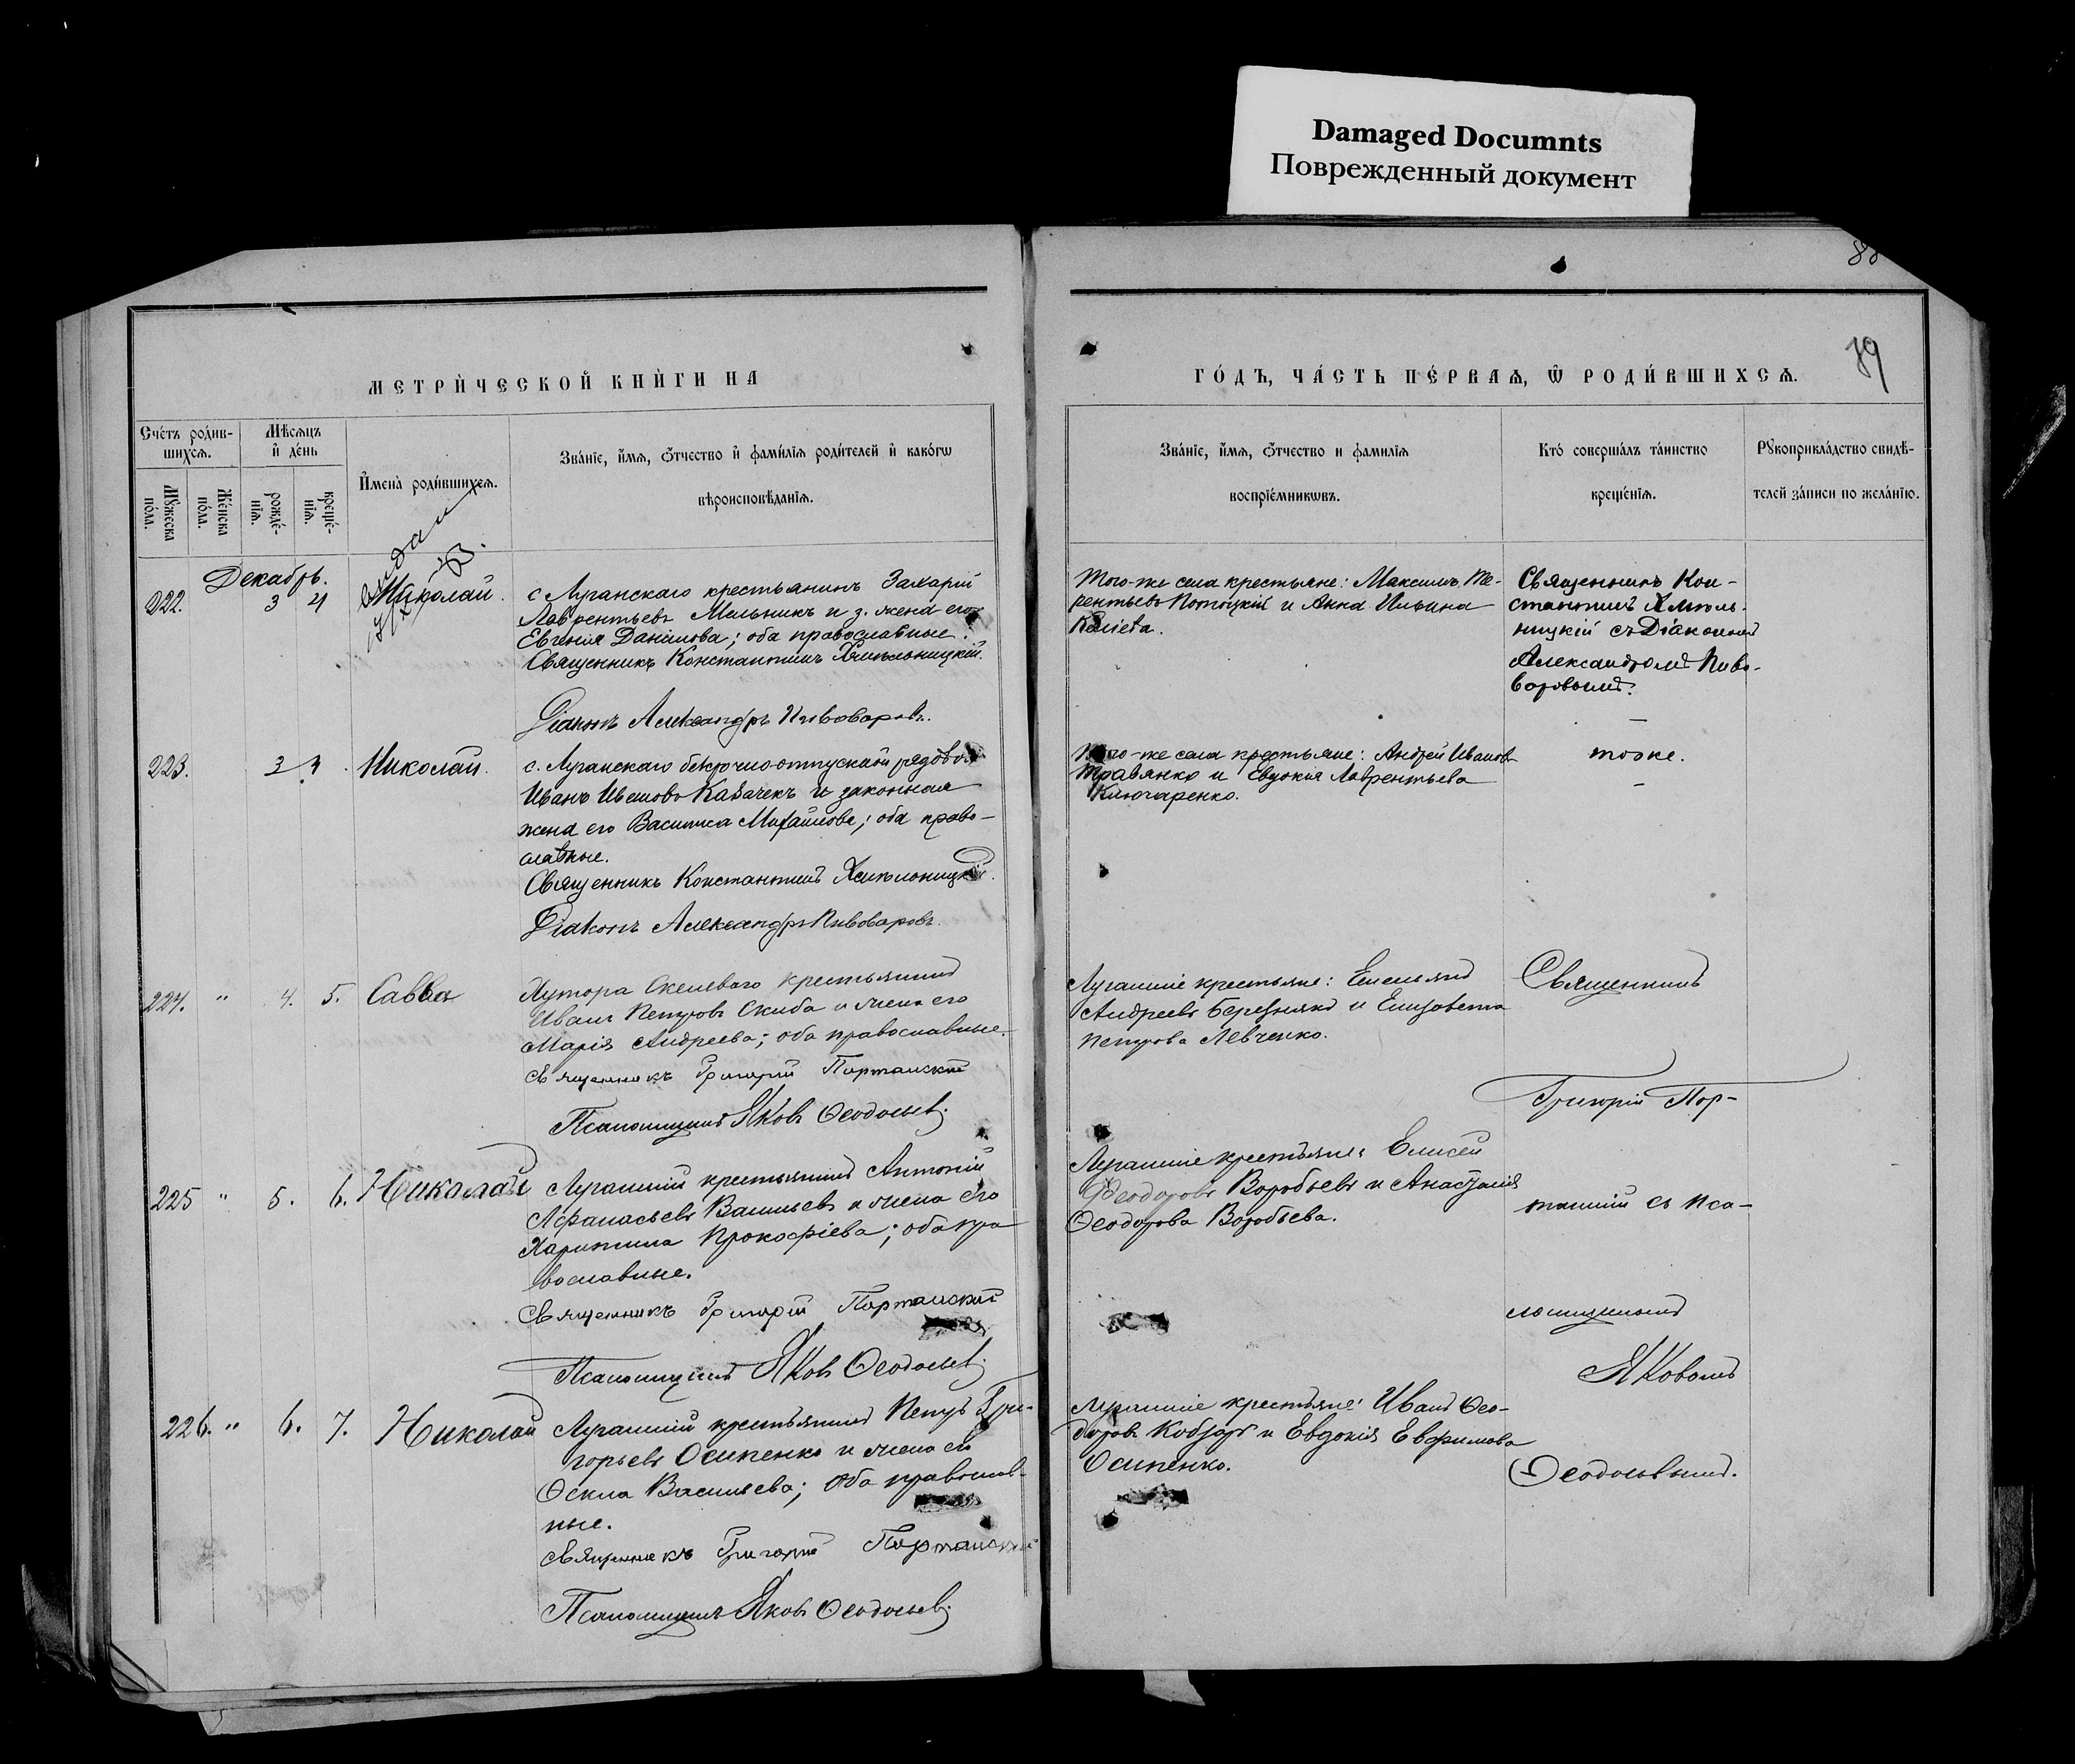 Damaged Documnts
Поврежденный документ
88
79
МЕТРИ́ЧЕСКОЙ КНИ́ГИ НА
ГО́ДЪ, ЧА́СТЬ ПЕ́РВАѦ, Ѿ РОДИ́ВШИХСѦ.
Сче́тъ роди́в-
шихсѧ.
Мꙋ́жеска
по́ла.
Же́нска
по́ла.
Мѣ́сѧцъ
и҆ де́нь
рожде́-
нїѧ.
креще́-
нїѧ.
И҆мена̀ роди́вшихсѧ.
Зва́нїе, и҆́мѧ, ѻ҆́тчество и҆ фами́лїѧ роди́телей и҆ како́гѡ
вѣроисповѣ́данїѧ.
Зва́нїе, и҆́мѧ, ѻ҆́тчество и фами́лїѧ
воспрїе́мникѡвъ.
Кто́ соверша́лъ та́инство
креще́нїѧ.
Рꙋкоприкла́дство свидѣ́-
телей за́писи по жела́нїю.
Декабрь.
222.
3 4
Николай.
с Луганскаго крестьянинъ Захарій
Лаврентьевъ Мельникъ и з. жена его
Евгенія Данілова; оба православные.
Священникъ Константинъ Хмѣльницкій.
Діаконъ Александръ Пивоваровъ.
Того-же села крестьяне: Максимъ Те-
рентьевъ Потоцкій и Анна Ильина
Священникъ Кон-
стантинъ Хмѣль-
ницкій съ Діакономъ
Александромъ Пиво-
варовымъ.
223.
3 4
Николай.
с. Луганскаго безсрочно-отпускной рядовой
Иванъ Ивановъ Казачекъ и законная
жена его Василиса Михайлова; оба право-
славные.
Священникъ Константинъ Хмѣльницкій.
Діаконъ Александръ Пивоваровъ.
Того-же села крестьяне: Андрей Ивановъ
Травянко и Евдокія Лаврентьева
Ключаренко.
тоже.
224. " 4. 5. Савва
Хутора Скелеваго крестьянинъ
Иванъ Петровъ Скиба и жена его
Марія Андреева; оба православные.
Священникъ Григорій Портанскій
Псаломщикъ Яковъ Ѳеодосьевъ.
Луганскіе крестьяне: Емельянъ
Андреевъ Березнякъ и Елизавета
Петрова Левченко.
Священникъ
Григорій Пор-
225 " 5. 6. Николай
Луганскій крестьянинъ Антоній
Аѳанасьевъ Васильевъ и жена его
Харитина Прокофіева; оба пра-
вославные.
Священникъ Григорій Портанскій
Псаломщикъ Яковъ Ѳеодосьевъ.
Луганскіе крестьяне: Елисей
Ѳеодоровъ Воробьевъ и Анастасія
Ѳеодорова Воробьева.
танскій съ пса-
ломщикомъ
Яковомъ
226. " 6. 7. Николай
Луганскій крестьянинъ Петръ Гри-
горьевъ Осипенко и жена его
Ѳекла Васильева; оба православ-
ные.
Священникъ Григорій Портанскій
Псаломщикъ Яковъ Ѳеодосьевъ.
Луганскіе крестьяне: Иванъ Ѳео-
доровъ Кобзарь и Евдокія Евфимова
Осипенко.
Ѳеодосьевымъ.